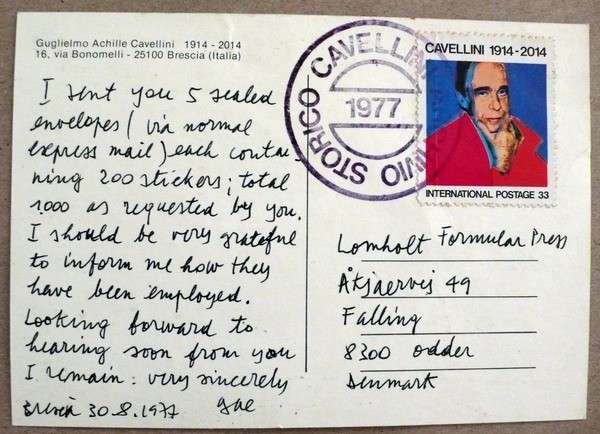 Guglielmo Achille Cavellini 1914 - 2014
16, via Bonomelli - 25100 Brescia (Italia)
I sent you 5 sealed
envelopes (via normal
express mail) each contai-
ning 200 stickers; total
1000 as requested by you.
I should be very grateful
to inform me how they
have been employed.
Looking forward to
hearing soon from you
I remain: very sincerely
Brescia 30.8.1977 gac
CAVELLINI
1977
STORICO
CAVELLINI 1914-2014
INTERNATIONAL POSTAGE 33
Lomholt Formular Press
Åkjaervej 49
Falling
8300 odder
Denmark